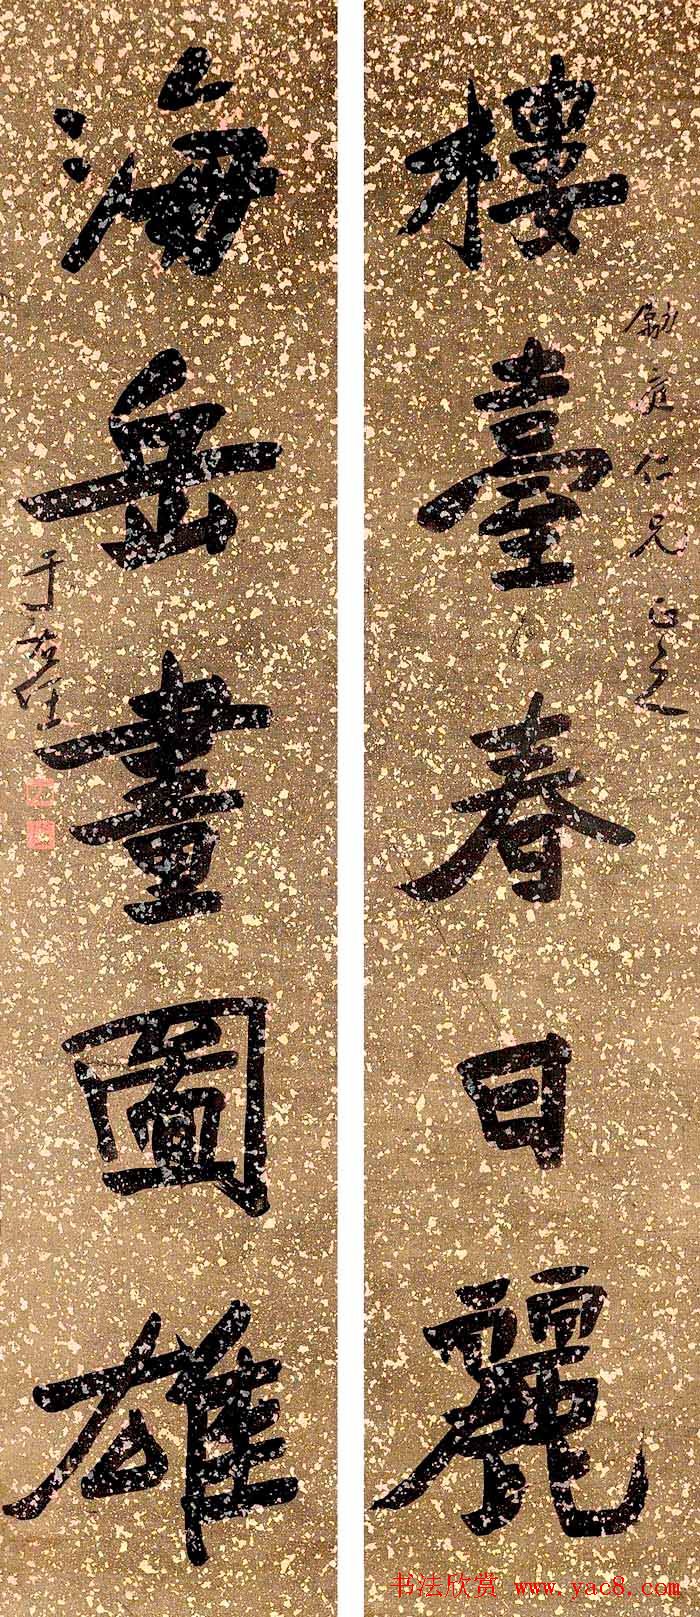 樓臺春日麗
勵定仁兄正之
海岳畫圖雄
于右任
书法欣赏 www.yac8.com